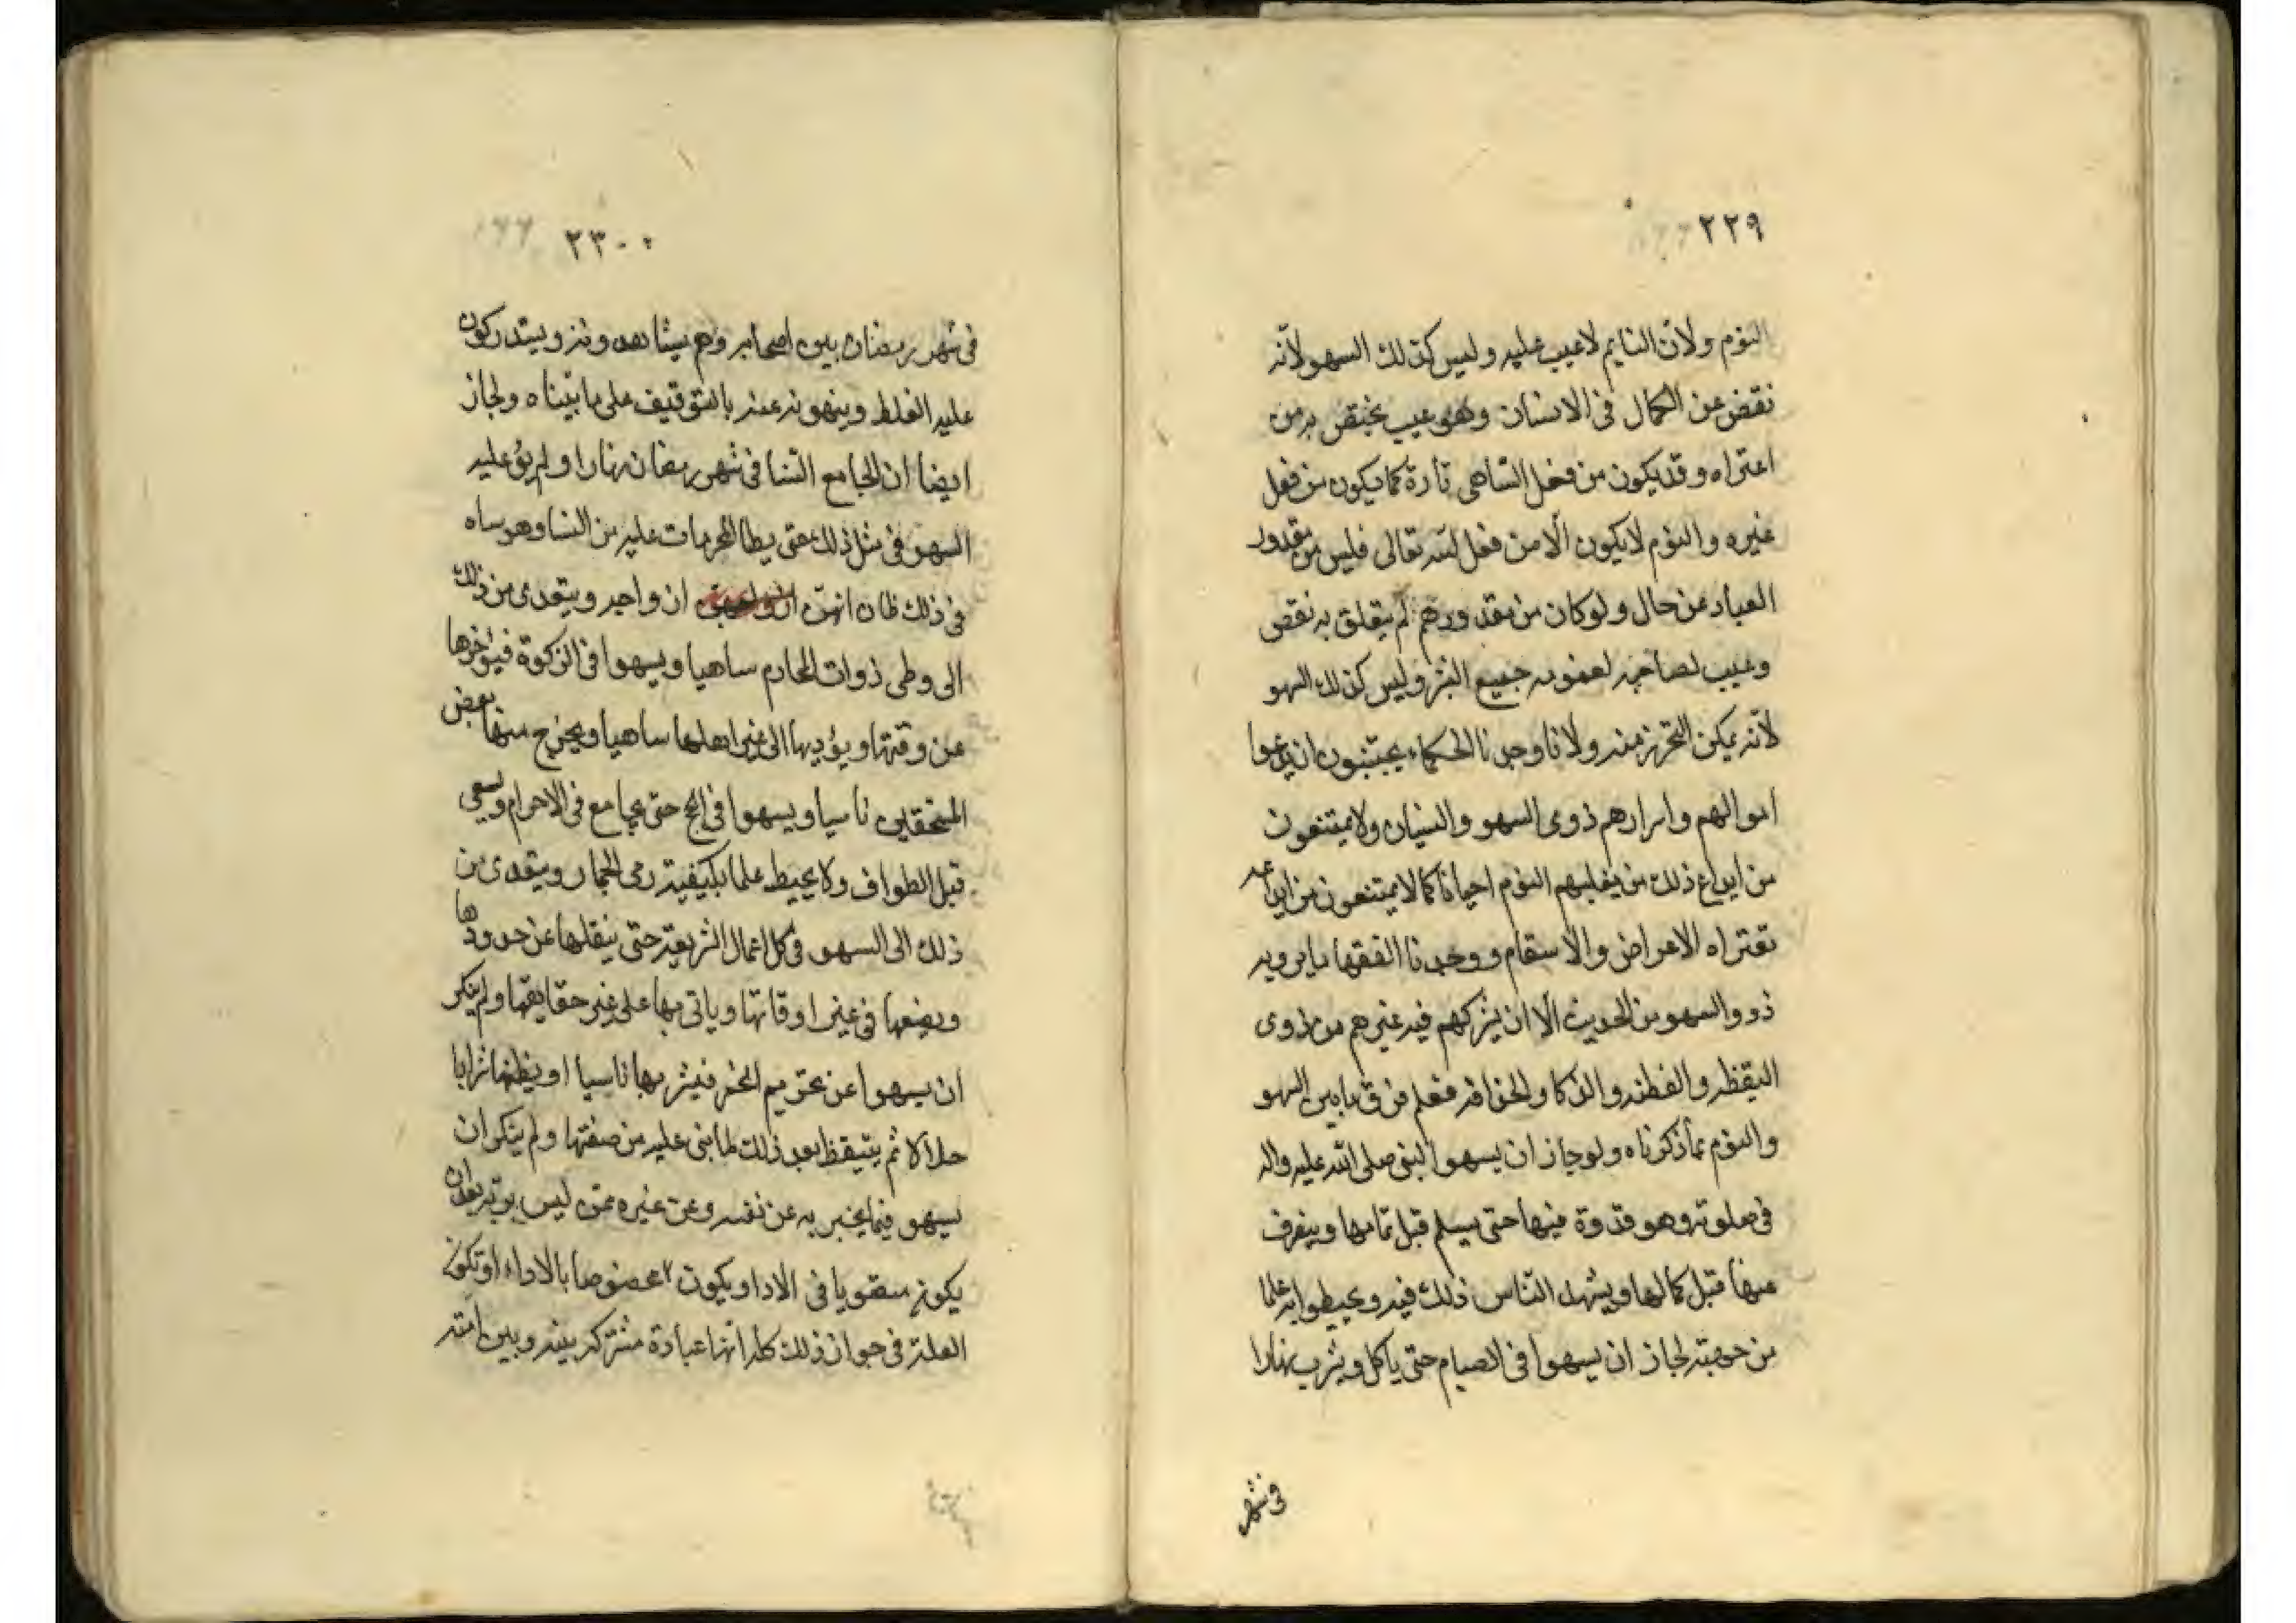 ٢٢٩
النوم ولان النايم لا عيب عليه وليس كذلك السهو لانه
نقض عن الكمال فى الانسان وهو عيب يختص به من
اعتراه وقد يكون من فعل الساهى تارة كما يكون من فعل
غيره والنوم لا يكون الّا من فعل الله تعالى فليس من مقدور
العباد عن حال ولو كان من مقدورهم لم يتعلق به نقص
وعيب لصاحبه لعمومه جميع البشر وليس كذلك السهو
لانّه يمكن التحرز منه ولانا وجدنا الحكماء يجتنبون ان يودعوا
اموالهم واسرارهم ذوى السهو والنسيان ولا يمتنعون
من ايداع ذلك من يغلبهم النوم احيانا كما لا يمتنعون من ايداعه
تعتراه الامراض والاسقام ووجدنا الفقها ما يرويه
ذوو السهو من الحديث الّا ان يشركهم فيه غيرهم من ذوى
اليقظه والفطنه والذكا والحذاقه فعلم فرق ما بين السهو
والنوم بما ذكرناه ولو جاز ان يسهو النبى صلى الله عليه واله
فى صلوته وهو قدوة فيها حتى يسلم قبل تمامها وينصرف
عنها قبل كمالها ويشهد الناس ذلك فيه ويحيطوا به علما
من جهته لجاز ان يسهوا فى الصيام حتى ياكل ويشرب نهارا
فى شهر
٢٣٠
فى شهر رمضان بين اصحابه وهم يشاهدونه ويستدركون
عليه الغلط وينهونه عنه بالتوقيف على ما بيّناه ولجاز
ايضا ان الجامع النسا فى شهر رمضان نهارا ولم يؤ عليه
السهو فى مثل ذلك حتى يطا المحرمات عليه من النسا وهو ساه
فى ذلك ظان انهن ازواجه ان واجه ويتعدى من ذلك
الى وطى ذوات المحارم ساهيا ويسهوا فى الزكوة فيؤخرها
عن وقتها ويؤديها الى غير اهلها ساهيا ويخرج منها بعض
المستحقين ناسيا ويسهوا فى الحج حتى يجامع فى الاحرام ويسعى
قبل الطواف ولا يحيط علما بكيفية رمى الجمار ويتعدى من
ذلك الى السهو فى كل اعمال الشريعة حتى ينقلها عن حدودها
ويضعها فى غير اوقاتها وياتى بها على غير حقايقها ولم ينكر
ان يسهوا عن تحريم الخمر فيشربها ناسيا او يظنها شرابا
حلالا ثم يتيقظ بعد ذلك لما بنى عليه من صفتها ولم ينكر ان
يسهو فيما يخبر به عن نفسه وعن غيره ممن ليس بربه بعد ان
يكون فى الادا ويكون مخصوصا بالاداء او تكون
العلة فى جواز ذلك كله انها عبادة مشتركه بينه وبين امته